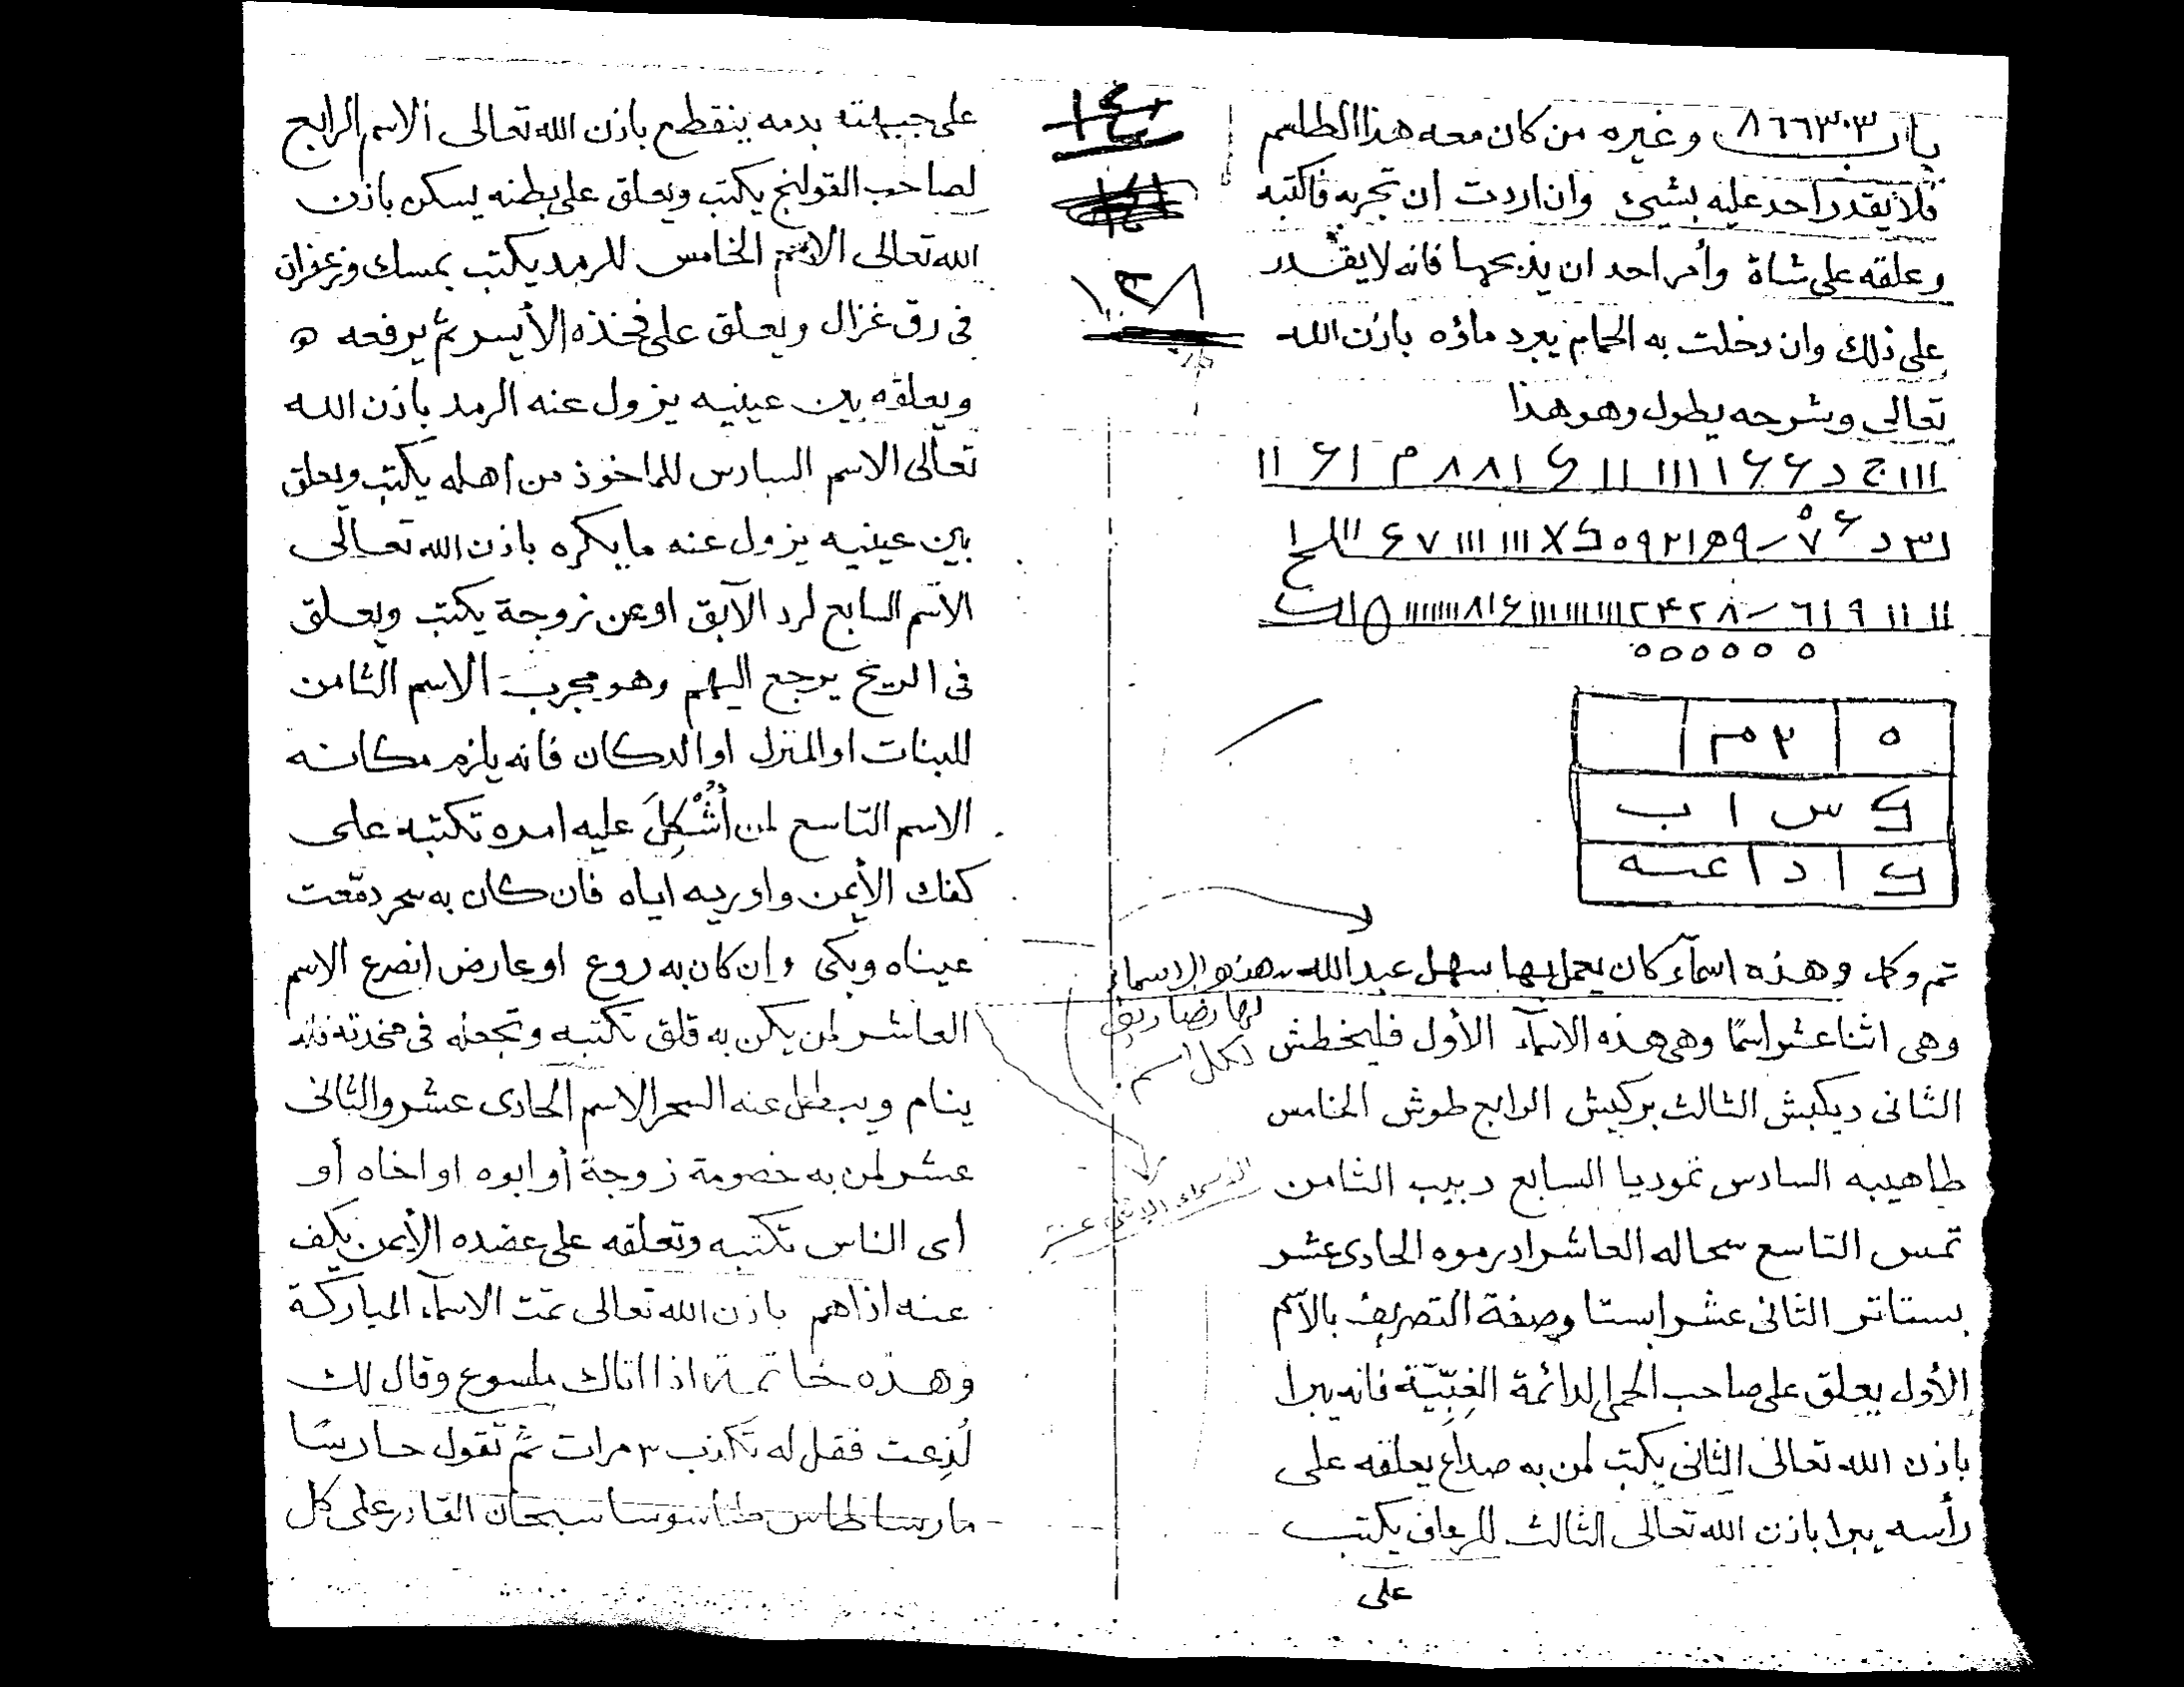 باب ٨٦٦٣٠٣ وغيره من كان معه هذا الطلسم
فلا يقدر احد عليه بشيئ وان اردت ان تجربه فاكتبه
وعلقه على شاة وأمر احد ان يذبحها فانه لا يقدر
على ذلك وان دخلت به الحمام يبرد ماؤه باذن الله
تعالى وشرحه يطول وهو هذا
٥ ٥ ٥ ٥ ٥ ٥
٥ ٣ م
ك س ا ب
ك ا د ا عسه
تم وكل وهذه اسمآء كان يعمل بها سهل عبد الله هذه الاسماء
لها تصاريف
لكل اسم
وهى اثنا عشر اسمًا وهى هذه الاسمآء الأول فليخطش
الثانى ديكبش الثالث بركيش الرابع طوش الخامس
طاهيبه السادس تموديا السابع دبيب الثامن
تمس التاسع سحاله العاشر ادرموه الحادى عشر
بستاتر الثانى عشر ابستا وصفة التصريف بالاسم
الأول يعلق على صاحب الحمى الدائمة الغِبِّيّة فانه يبرا
باذن الله تعالى الثانى يكتب لمن به صداع يعلقه على
رأسه يبرا باذن الله تعالى الثالث للرعاف يكتب
على
الاسماء الاثنى عشر
على جبهته بدمه ينقطع باذن الله تعالى الاسم الرابع
لصاحب القولنج يكتب ويعلق على بطنه يسكن باذن
الله تعالى الاسم الخامس للرمد يكتب بمسك وزعفران
فى رق غزال ويعلق على فخذه الأيسر ثم يرفعه ه
ويعلقه بين عينيه يزول عنه الرمد باذن الله
تعالى الاسم السادس للماخوذ من اهله يكتب ويعلق
بين عينيه يزول عنه ما يكره باذن الله تعالى
الاسم السابع لرد الآبق او عن زوجة يكتب ويعلق
فى الريح يرجع اليهم وهو مجرب الاسم الثامن
للبنات او المنزل او الدكان فانه يلزم مكانه
الاسم التاسع لمن أُشْكِلَ عليه امره تكتبه على
كفك الأيمن واوريه اياه فان كان به سحر دمّعت
عيناه وبكى وان كان به روع او عارض انصرع الاسم
العاشر لمن يكن به قلق تكتبه وتجعله فى مخدته فانه
ينام ويبطل عنه السحر الاسم الحادى عشر والثانى
عشر لمن به خصومة زوجة أو ابوه او اخاه أو
اى الناس تكتبه وتعلقه على عضده الأيمن يكف
عنه اذاهم باذن الله تعالى تمت الاسمآء المباركة
وهذه خاتمة اذا اتاك ملسوع وقال لك
لُذِعت فقل له تكذب ٣ مرات ثم تقول حارسًا
مارسا طاس طاسوسا سبحان القادر على كل